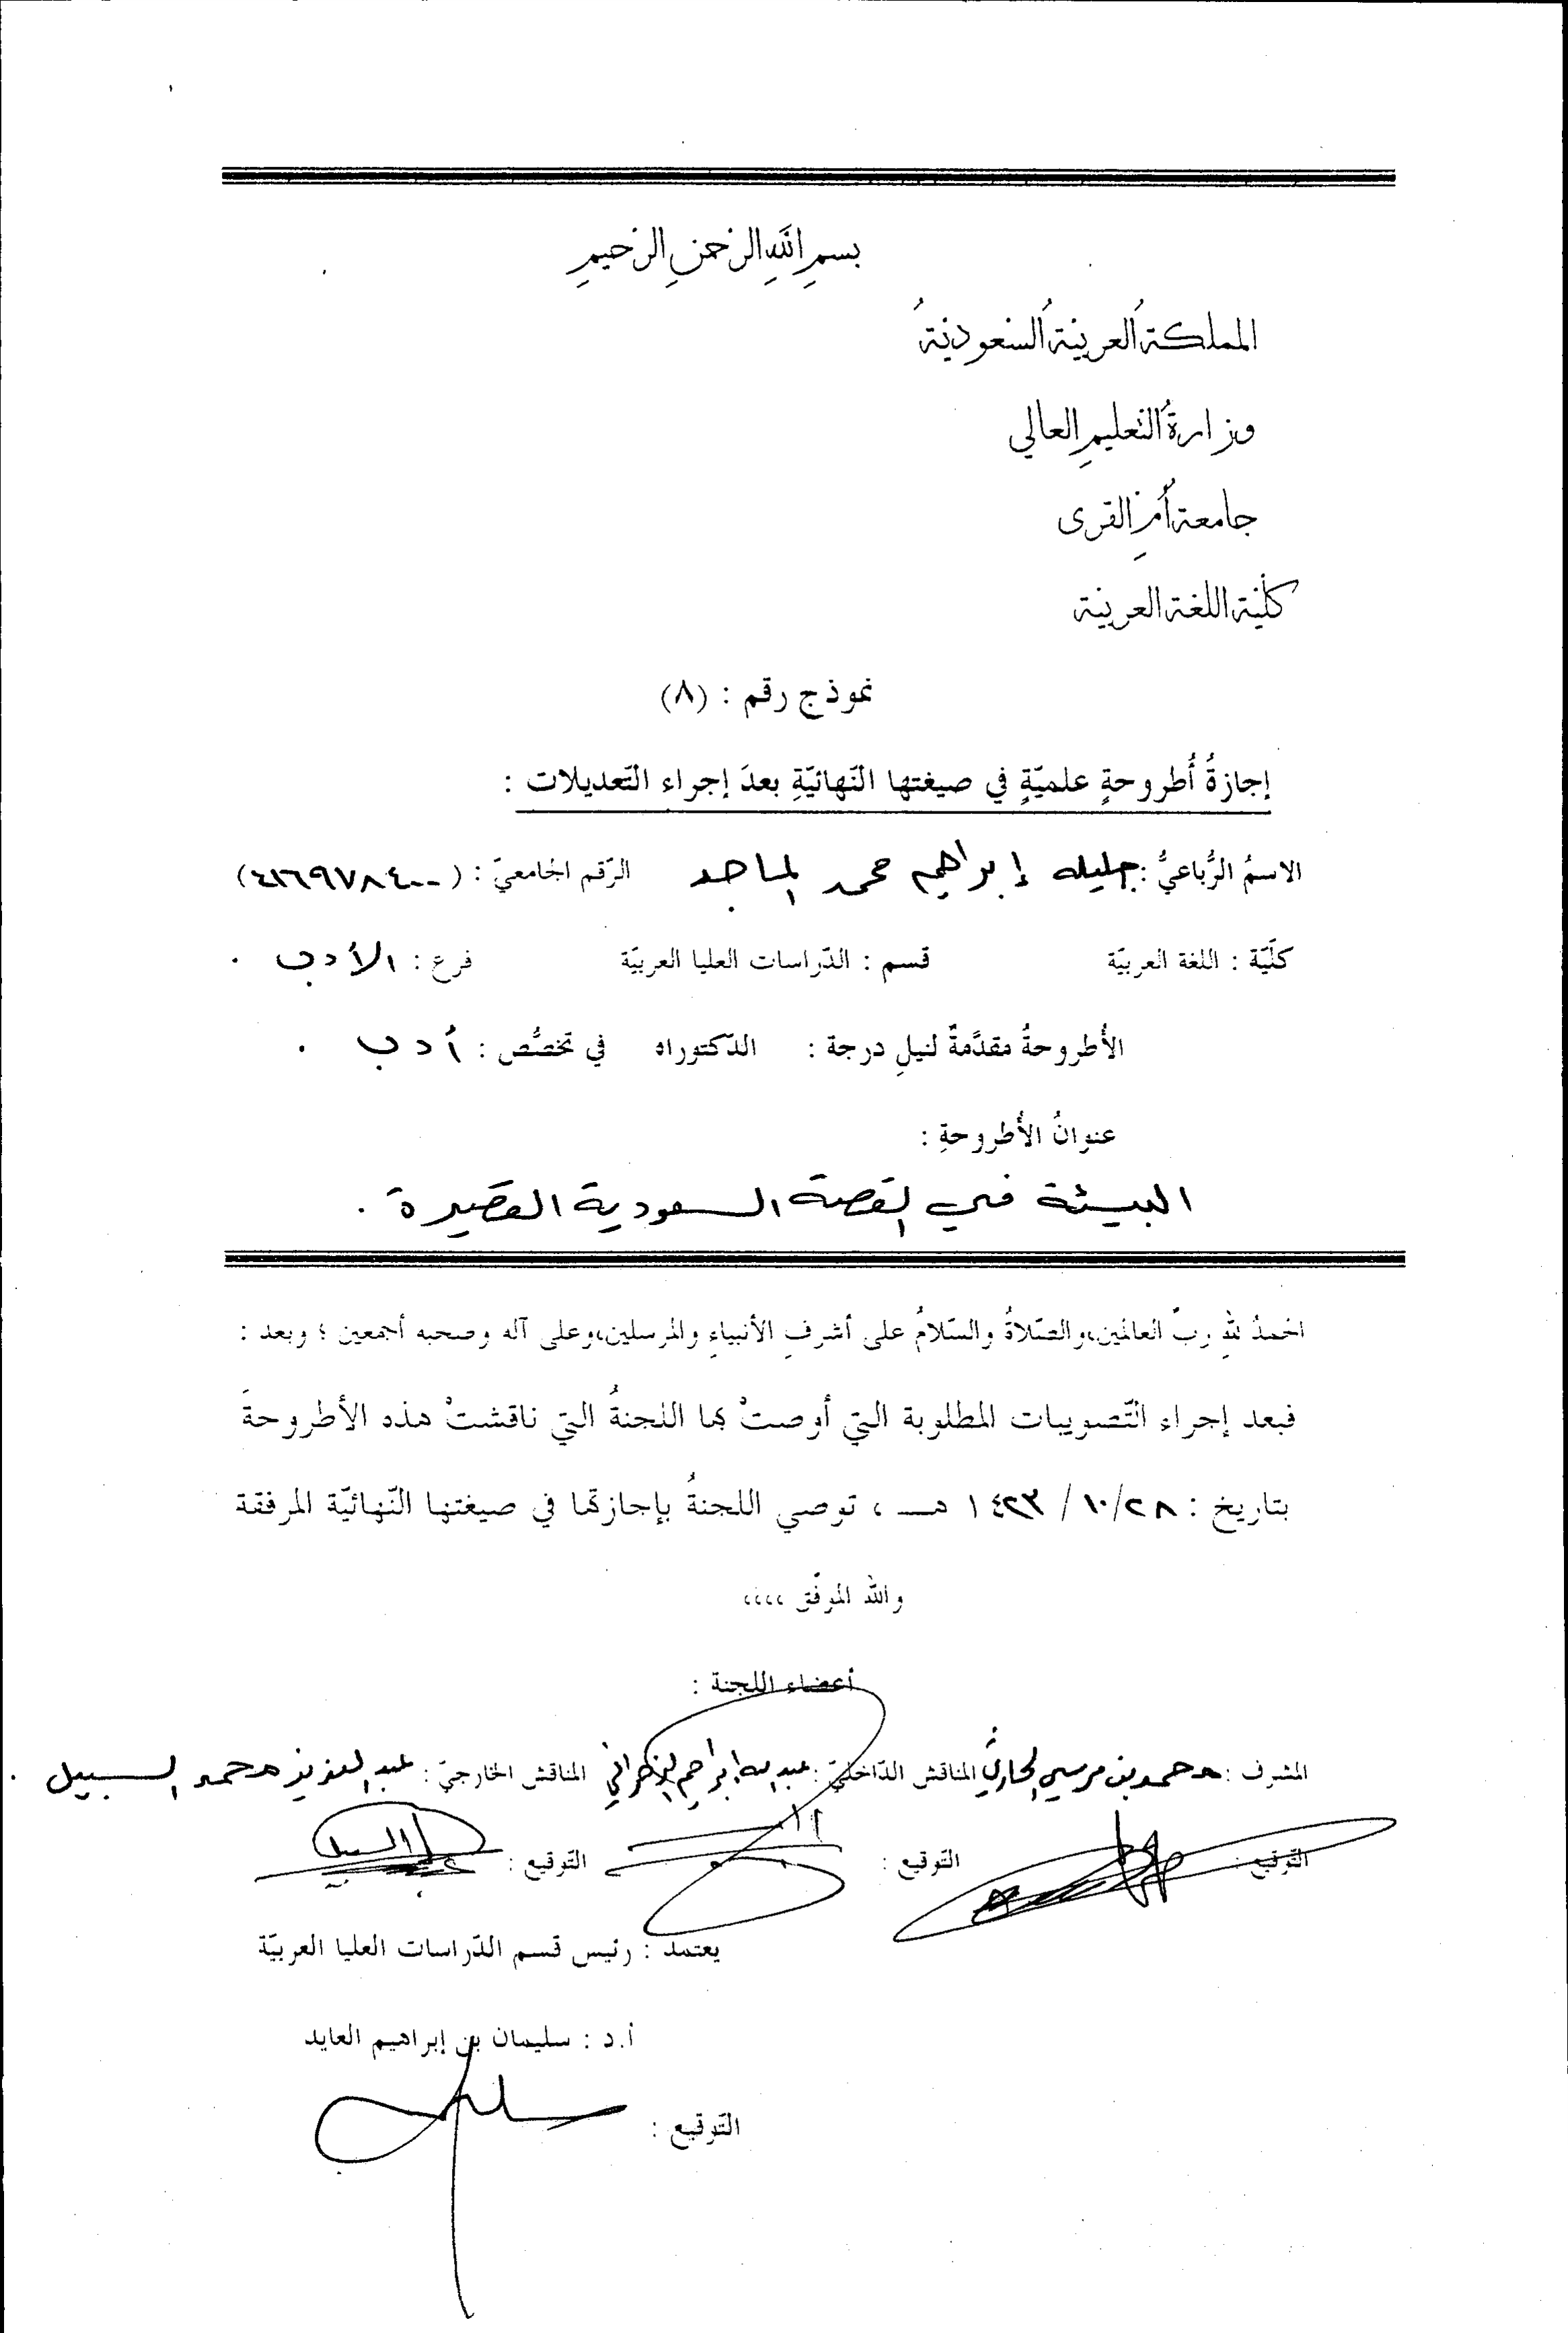 بسمِ اللهِ الرّحمنِ الرّحيمِ
المملكةُ العربيّةُ السّعوديّةُ
وزارةُ التّعليمِ العالي
جامعةُ أمِّ القرى
كلّيّة اللغة العربيّة
نموذج رقم : (٨)
إجازةُ أُطروحةٍ علميّةٍ في صيغتها النّهائيّةِ بعدَ إجراء التّعديلات :
الاسمُ الرُّباعيُّ : جليله إبراهيم محمد الماجد الرّقم الجامعيّ : (
كلّيّة : اللغة العربيّة قسم : الدّراسات العليا العربيّة فرع : الأدب .
الأُطروحةُ مقدَّمةٌ لنيلِ درجة : الدّكتوراه في تخصُّص : أدب .
عنوانُ الأُطروحةِ :
البيئة في القصة السعودية القصيرة .
الحمدُ للهِ ربِّ العالمين،والصّلاةُ والسّلامُ على أشرفِ الأنبياءِ والمرسلين،وعلى آله وصحبه أجمعين ؛ وبعد :
فبعد إجراء التّصويبات المطلوبة التي أوصتْ بها اللجنةُ التي ناقشتْ هذه الأطروحةَ
بتاريخ : ١٠/٢٨ / ١٤٢٣ هـــ ، توصي اللجنةُ بإجازتها في صيغتها النّهائيّة المرفقة
والله الموفّق ،،،،
أعضاء اللجنة :
المشرف : محمد بن مرسي الحارثي المناقش الدّاخليّ : عبدالله إبراهيم الزهراني المناقش الخارجيّ : عبدالعزيز محمد السبيل .
التّوقيع : التّوقيع : التّوقيع :
يعتمد : رئيس قسم الدّراسات العليا العربيّة
أ.د : سليمان بن إبراهيم العايد
التّوقيع :